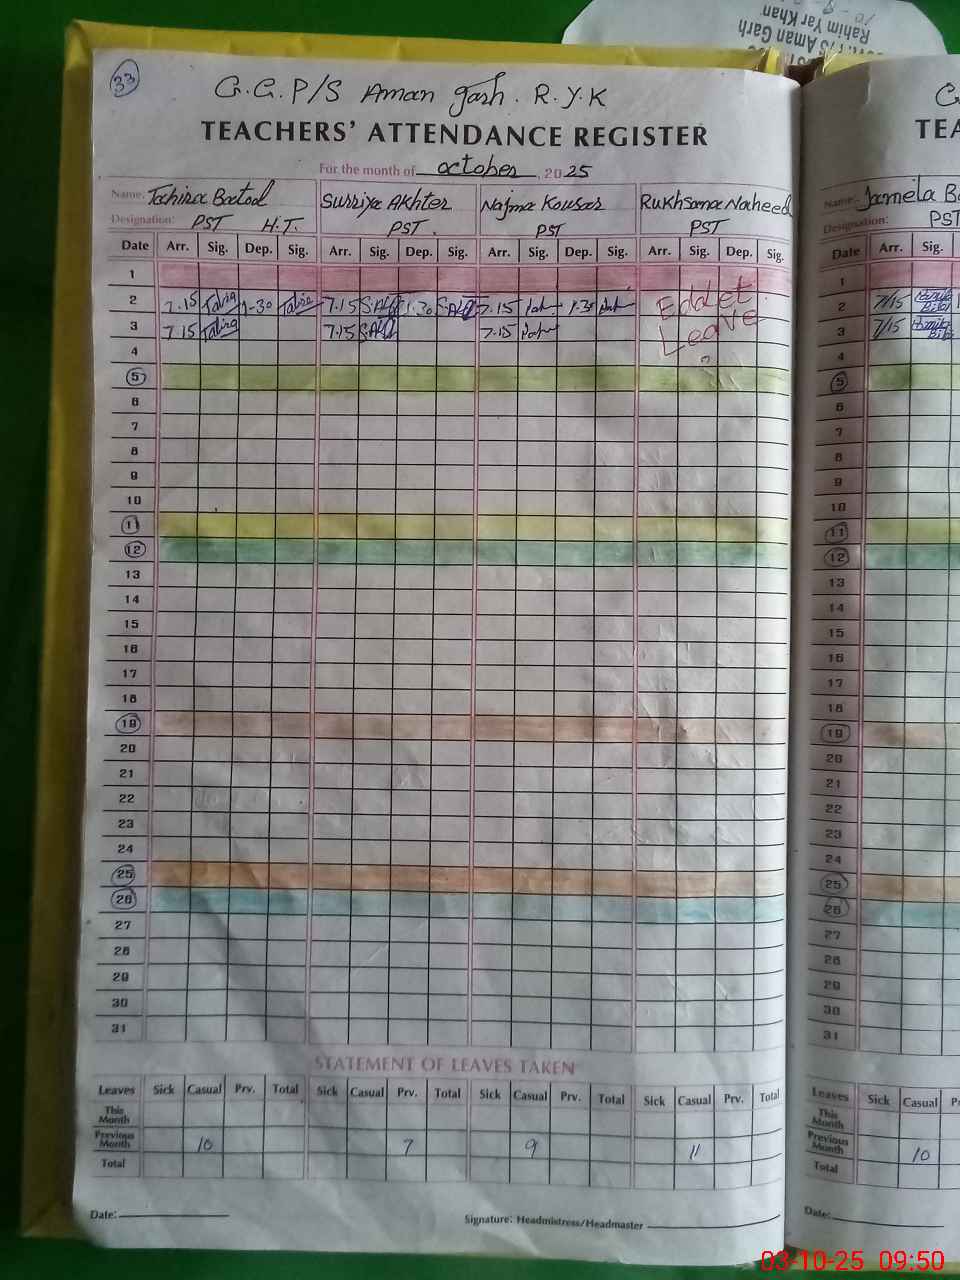 33
G.G.P/S Aman Garh. R.Y.K
TEACHERS' ATTENDANCE REGISTER
For the month of October, 2025
Name: Tahira Batool Surriya Akhter Najma Kousar Rukhsana Naheed
Designation: PST H.T. PST. PST PST
Date Arr. Sig. Dep. Sig. Arr. Sig. Dep. Sig. Arr. Sig. Dep. Sig. Arr. Sig. Dep. Sig.
1
2 7.15 Tahira 1-30 Tahira 7.15 S.Akh 1.30 S.Akh 7.15 1.30 Eddet
3 7.15 Tahira 7.15 S.Akh 7.15 Leave
4
5
6
7
8
9
10
11
12
13
14
15
16
17
18
19
20
21
22
23
24
25
26
27
28
29
30
31
STATEMENT OF LEAVES TAKEN
Leaves Sick Casual Prv. Total Sick Casual Prv. Total Sick Casual Prv. Total Sick Casual Prv. Total
This Month
Previous Month 10 7 9 11
Total
Date:
Signature: Headmistress/Headmaster
G
TEA
Name: Jamela B
Designation: PST
Date Arr. Sig.
1
2 7/15 Bibi
3 7/15 Bibi
4
5
6
7
8
9
10
11
12
13
14
15
16
17
18
19
20
21
22
23
24
25
26
27
28
29
30
31
Leaves Sick Casual P
This Month
Previous Month 10
Total
Date:
P/S Aman Garh
Rahim Yar Khan
03-10-25 09:50